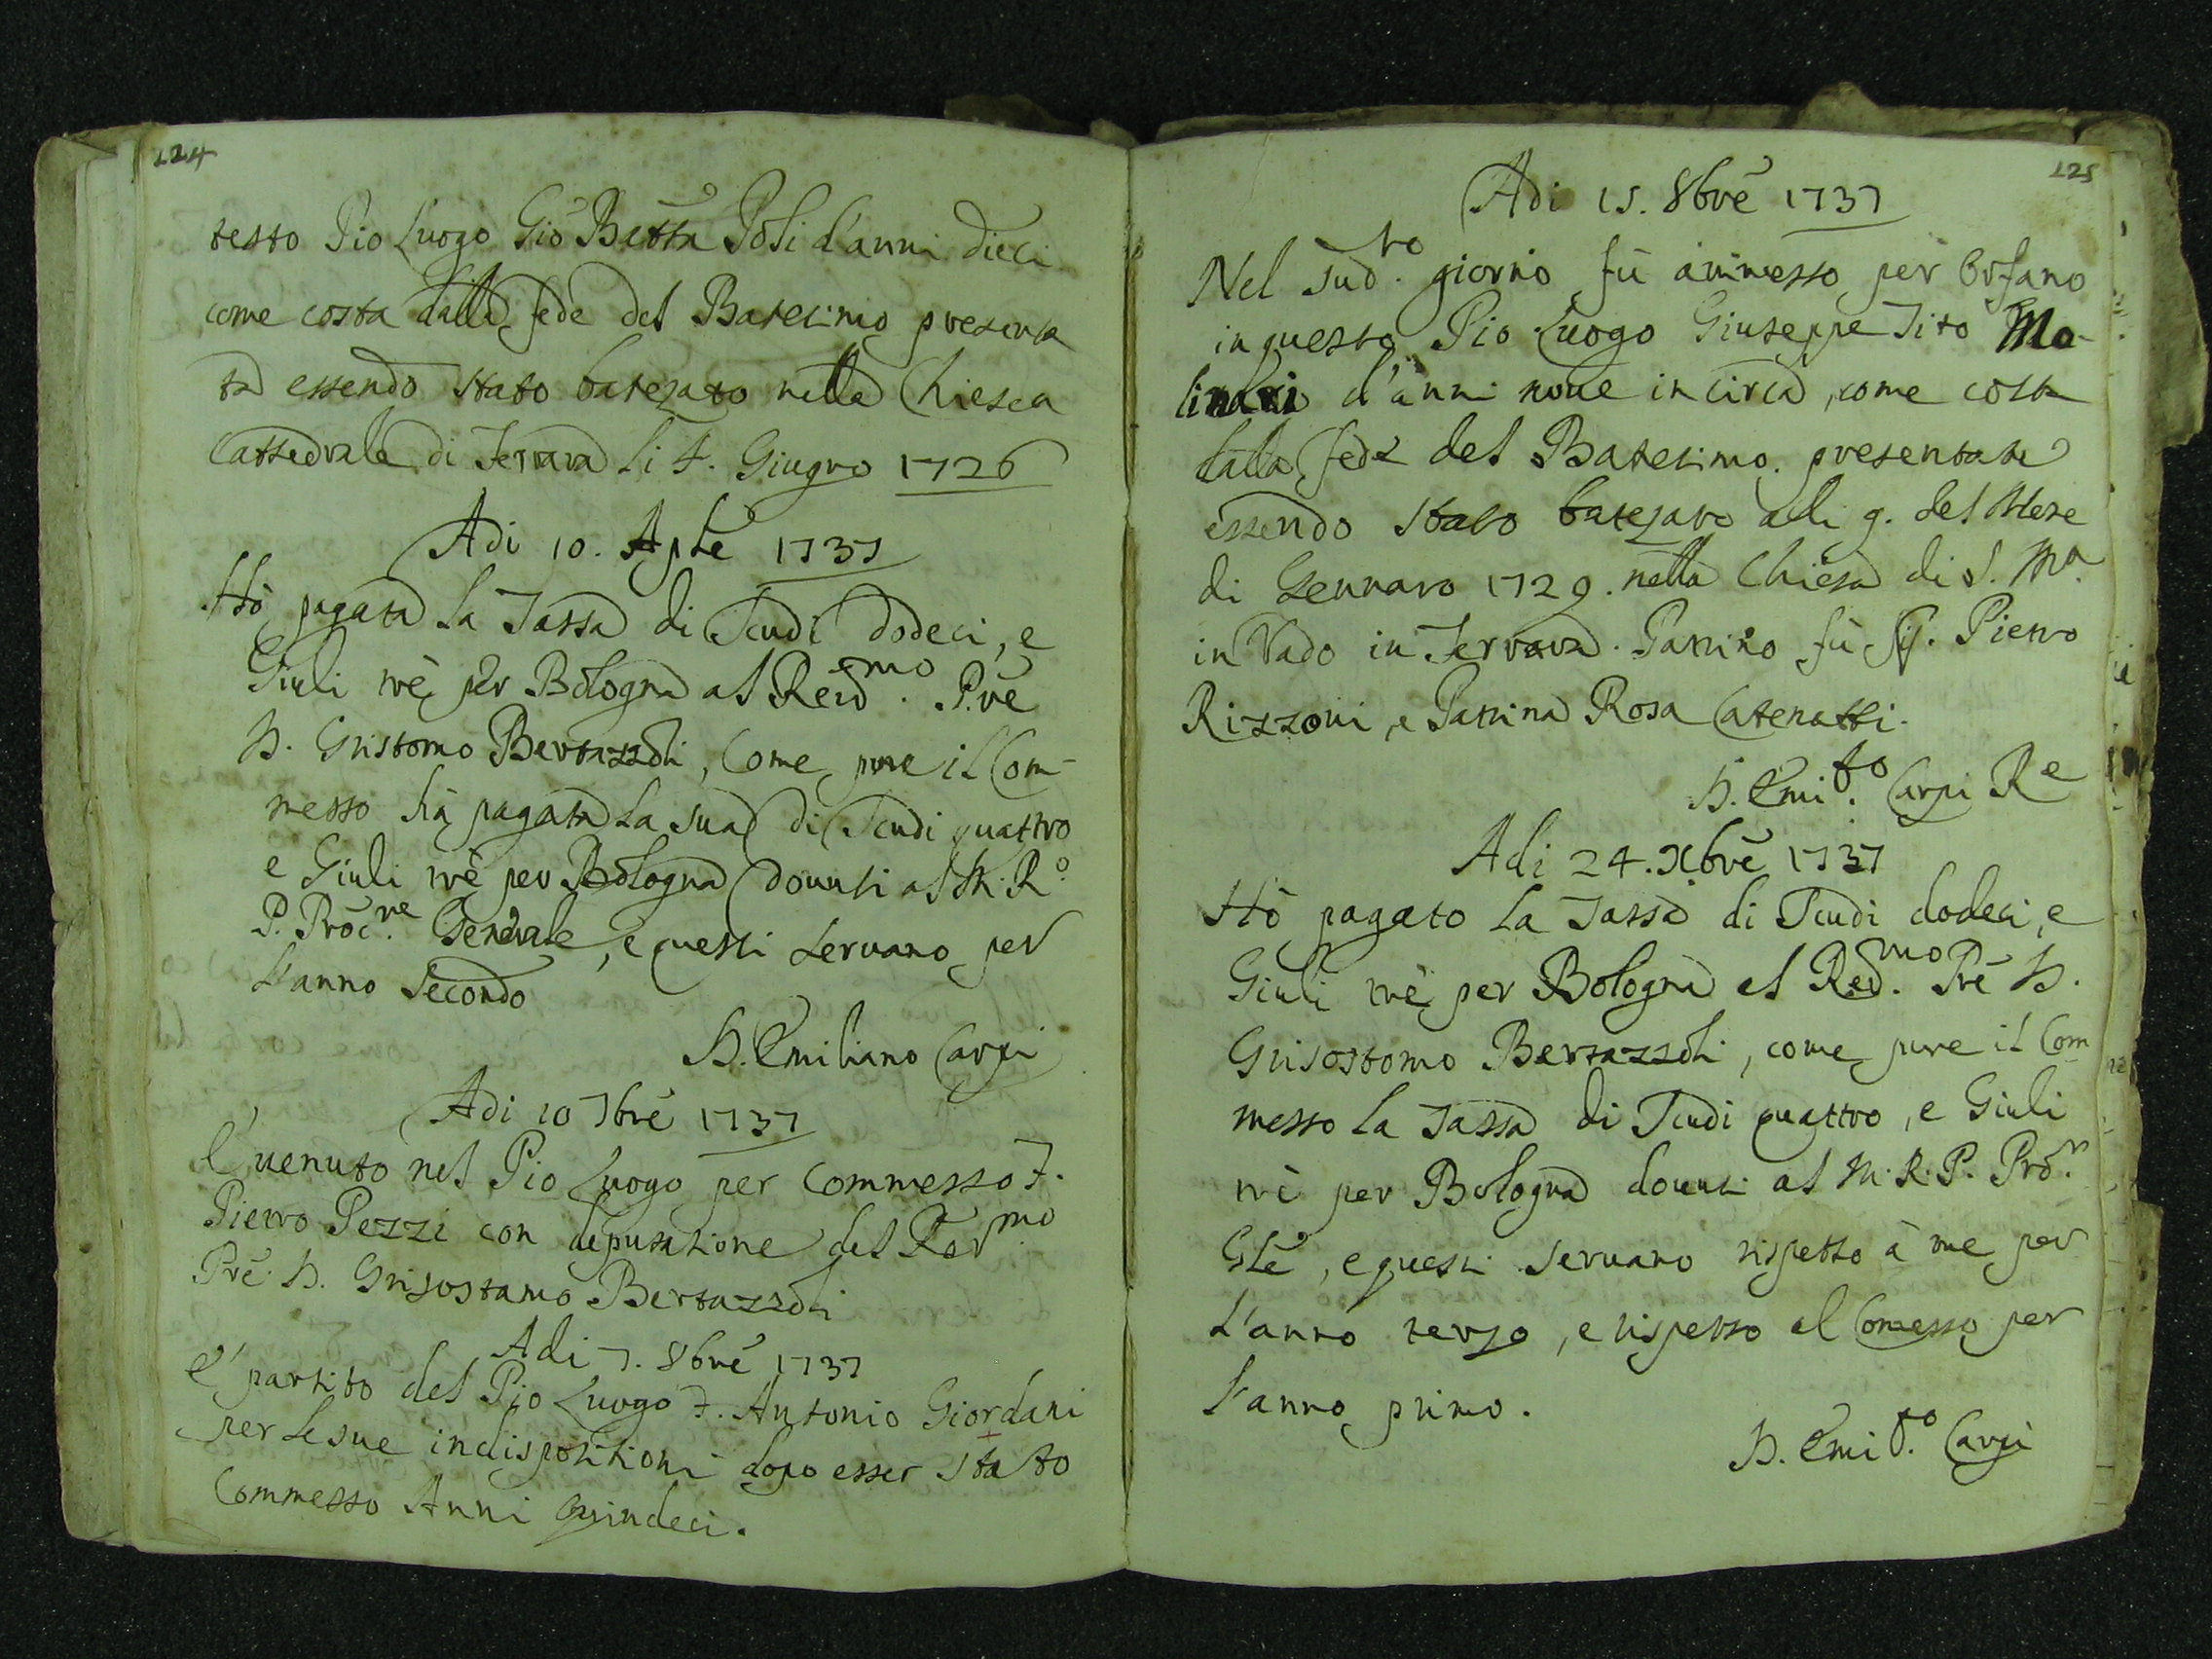 124
testo Pio Luogo Giō Batta Poli d'anni dieci
come costa dalla fede del Batesimo presenta
ta essendo stato batezato nella Chiesa
Cattedrale di Ferrara li 4. Giugno 1726
Adi 10. Aple 1737
Hò pagata la Tassa di Scudi dodeci, e
Giuli trè per Bologna al Revd.mo Pre
D. Gristomo Bertazzoli, Come pure il Com-
messo hà pagata la sua di Scudi quattro
e Giuli trè per Bologna douuti al M. R.o
P. Proc.re Generale, e questi seruano per
l'anno secondo
D. Emiliano Carpi
Adi 10 7bre 1737
E' uenuto nel Pio Luogo per Commesso F.
Pietro Pezzi con deputatione del Rev.mo
Pre D. Grisostamo Bertazzoli
Adi 7. 8bre 1737
E' partito del Pio Luogo F. Antonio Giordani
per le sue indispositioni dopo esser stato
Commesso Anni quindeci.
125
Adi 15. 8bre 1737
Nel sud.to giorno fù ammesso per Orfano
in questo Pio Luogo Giuseppe Tito Mo-
linari d'anni noue in circa, come costa
dalla fede del Batesimo. presentata
essendo stato batezato alli 9. del Mese
di Gennaro 1729. nella Chiesa di S. Ma.
in Vado in Ferrara. Patrino fù Sig. Pietro
Rizzoni, e Patrina Rosa Catenatti.
D. Emi.to Carpi Re
Adi 24. Xbre 1737
Hò pagato la Tassa di Scudi dodeci, e
Giuli trè per Bologna al Red.mo Pre D.
Grisostomo Bertazzoli, come pure il Com
messo la Tassa di Scudi quattro, e Giuli
trè per Bologna douuti al M. R. P. Pro.r
Gle, e questi seruano rispetto à me per
l'anno terzo, e rispetto al Comesso per
l'anno primo.
D. Emi.to Carpi